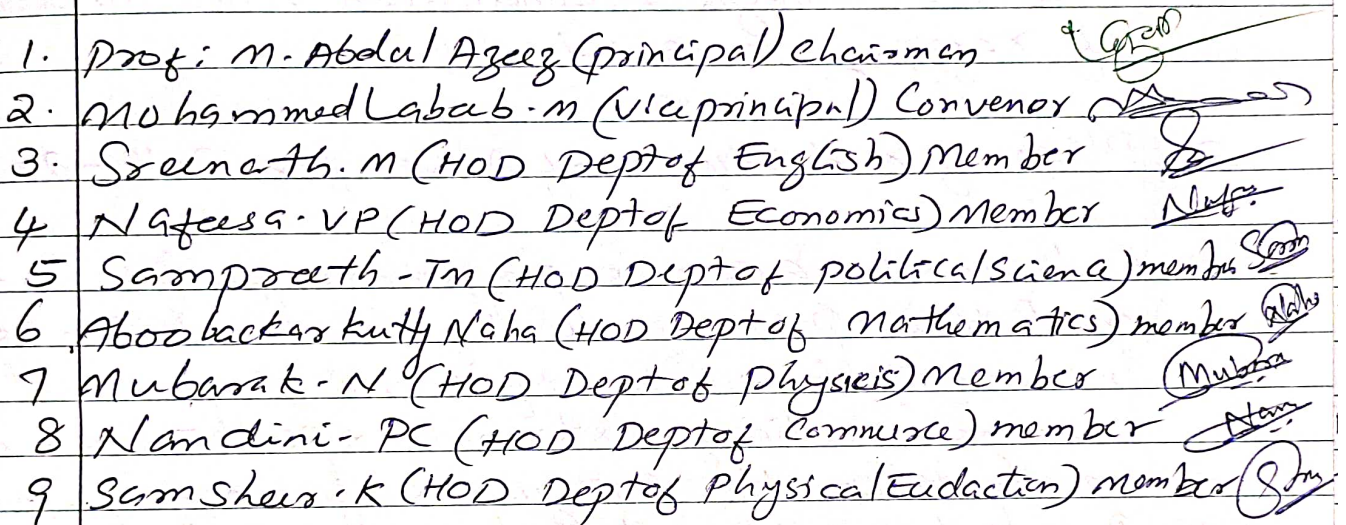 1. Prof: M. Abdul Azeez (principal) Chairman
2. Mohammed Labab. M (Viceprincipal) Convenor
3. Sreenath. M (HOD Dept of English) Member
4 Nafeesa. VP (HOD Dept of Economics) Member
5 Sampreeth - TM (HOD Dept of political Science) member
6 Aboobackar kutty Naha (HOD Dept of Mathematics) member
7 Mubarak - N (HOD Dept of Physicis) Member Mubara
8 Nandini - PC (HOD Dept of Commerce) member
9 Samsheer. K (HOD Dept of Physical Eudaction) member